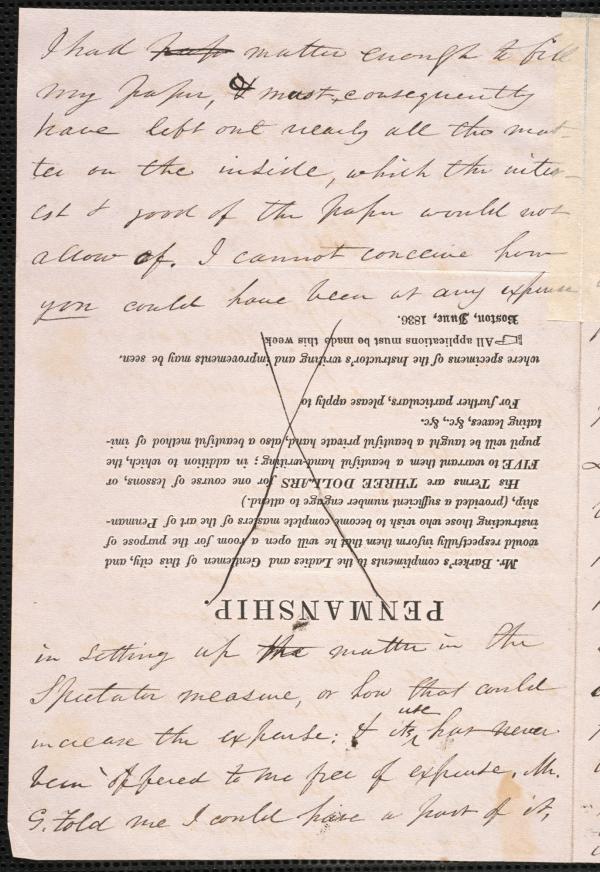 I had matter enough to fill
my paper, & must, consequently
have left out nearly all the mat-
ter on the inside, which the inter-
est & good of the paper would not
allow of. I cannot conceive how
you could have been at any expense
PENMANSHIP.
Mr. Barker's compliments to the Ladies and Gentlemen of this city, and
would respectfully inform them that he will open a room for the purpose of
instructing those who wish to become complete masters of the art of Penman-
ship, (provided a sufficient number engage to attend.)
His Terms are THREE DOLLARS for one course of lessons, or
FIVE to warrant them a beautiful hand-writing; in addition to which, the
pupil will be taught a beautiful private hand, also a beautiful method of imi-
tating leaves, &c., &c.
For further particulars, please apply to
where specimens of the Instructor's writing and improvements may be seen.
☞All applications must be made this week
Boston, June, 1836.
in setting up the matter in the
Spectator measure, or how that could
increase the expense: & its use has never
been offered to me free of expense. Mr.
G. told me I could have a part of it,